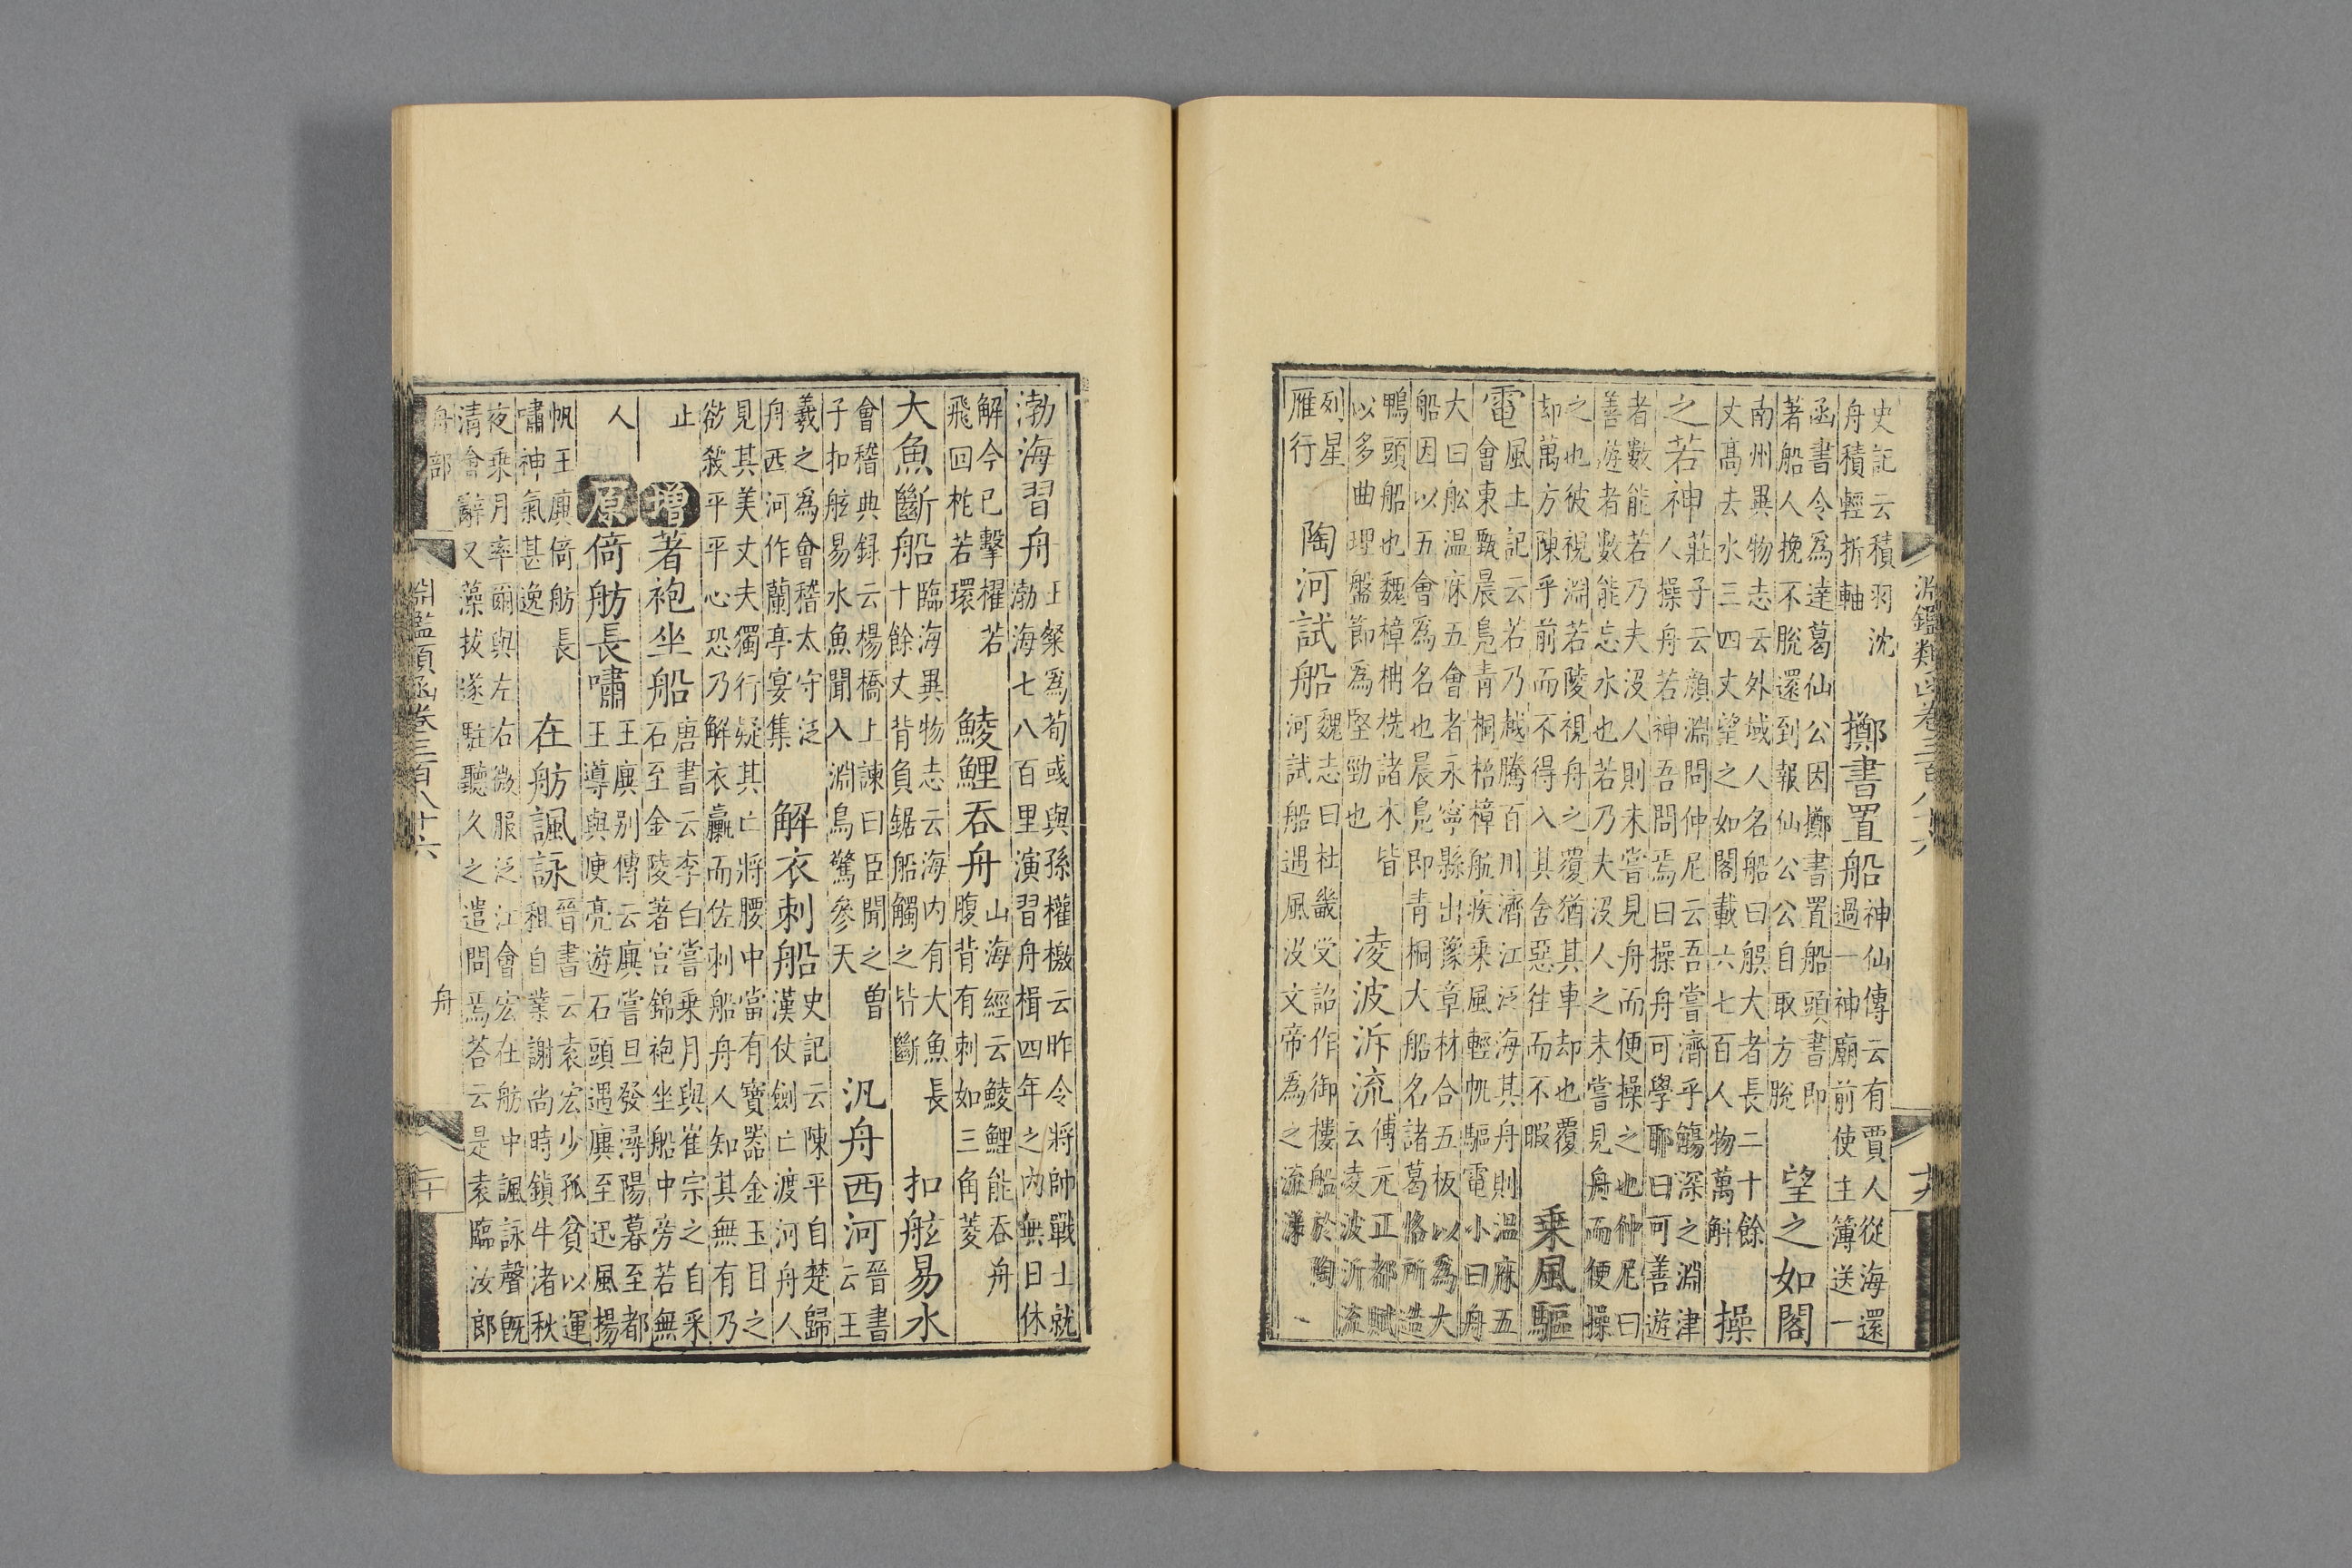 淵鑑類函卷三百八十六
十九
史記云積羽沈
舟積輕折軸
擲書置船
神仙傳云有賈人從海還
過一神廟前使主簿送一
函書令爲達葛仙公因擲書置船頭書即
著船人挽不脫還到報仙公公自取方脫
望之如閣
南州異物志云外域人名船曰舶大者長二十餘
丈高去水三四丈望之如閣載六七百人物萬斛
操
之若神
莊子云顏淵問仲尼云吾嘗濟乎觴深之淵津
人操舟若神吾問焉曰操舟可學耶曰可善遊
者數能若乃夫沒人則未嘗見舟而便操之也仲尼曰
善遊者數能忘水也若乃夫沒人之未嘗見舟而便操
之也彼視淵若陵視舟之覆猶其車却也覆
却萬方陳乎前而不得入其舍惡往而不暇
乗風驅
電
風土記云若乃越騰百川濟江泛海其舟則溫麻五
會東甄晨鳧青桐梧樟航疾乗風輕帆驅電小曰舟
大曰舩温麻五會者永寧縣出豫章材合五板以爲大
船因以五會爲名也晨鳧即青桐大船名諸葛恪所造
鴨頭船也魏樟柟栬諸木皆
以多曲理盤節爲堅勁也
凌波泝流
傅元正都賦
云凌波泝流
列星
雁行
陶河試船
魏志曰杜畿受詔作御樓船於陶
河試船遇風沒文帝爲之流涕
渤海習舟
上粲爲荀彧與孫權檄云昨令將帥戰士就
渤海七八百里演習舟楫四年之內無日休
解今已擊櫂若
飛回柁若環
鯪鯉吞舟
山海經云鯪鯉能吞舟
腹背有刺如三角菱
大魚斷船
臨海異物志云海內有大魚長
十餘丈背負鋸船觸之皆斷
扣舷易水
會稽典録云楊橋上諫曰臣聞之曽
子扣舷易水魚聞入淵鳥驚參天
汎舟西河
晉書
云王
羲之爲會稽太守泛
舟西河作蘭亭宴集
解衣刺船
史記云陳平自楚歸
漢仗劍亡渡河舟人
見其美丈夫獨行疑其亡將腰中當有寶器金玉目之
欲殺平平心恐乃解衣羸而佐刺船舟人知其無有乃
止
增
著袍坐船
唐書云李白嘗乘月與崔宗之自采
石至金陵著宮錦袍坐船中旁若無
人
原
倚舫長嘯
王廙别傳云廙嘗旦發潯陽暮至都
王導與庾亮遊石頭遇廙至迅風揚
帆王廙倚舫長
嘯神氣甚逸
在舫諷詠
晉書云袁宏少孤貧以運
租自業謝尚時鎮牛渚秋
夜乘月率爾與左右微服泛江會宏在舫中諷詠聲旣
清會辭又藻拔遂駐聽久之遣問焉荅云是袁臨汝郎
舟部
淵鑑類函卷三百八十六
舟
二十